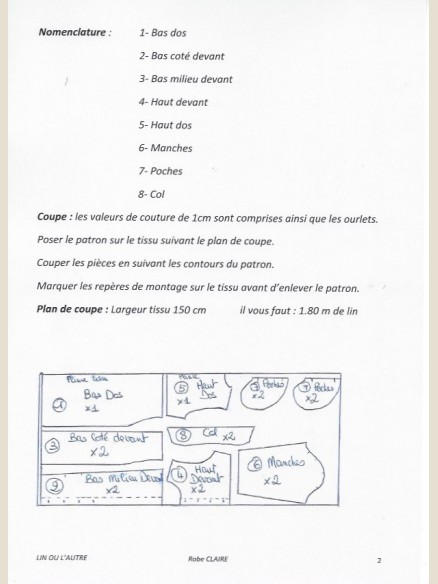 Nomenclature : 1- Bas dos
2- Bas coté devant
3- Bas milieu devant
4- Haut devant
5- Haut dos
6- Manches
7- Poches
8- Col
Coupe : les valeurs de couture de 1cm sont comprises ainsi que les ourlets.
Poser le patron sur le tissu suivant le plan de coupe.
Couper les pièces en suivant les contours du patron.
Marquer les repères de montage sur le tissu avant d'enlever le patron.
Plan de coupe : Largeur tissu 150 cm il vous faut : 1.80 m de lin
Bas Dos
x1
5 Haut
Dos
x1
Poches
x2
7 Poches
x2
3 Bas Coté devant
x2
8 Col x2
Bas Milieu Devant
x2
4 Haut
Devant
x2
6 Manches
x2
LIN OU L'AUTRE Robe CLAIRE 2